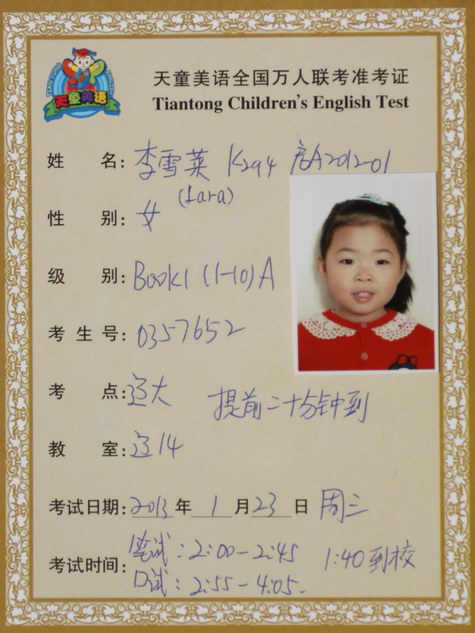 天童美语
天童美语全国万人联考准考证
Tiantong Children's English Test
姓 名: 李雪英 K294 A2012-01
(Lara)
性 别: 女
级 别: Book1 (1-10) A
考 生 号: 0357652
考 点: 大 提前二十分钟到
教 室: 14
考试日期: 2013 年 1 月 23 日 周三
考试时间: 笔试: 2:00-2:45 1:40到校
口试: 2:55-4:05.